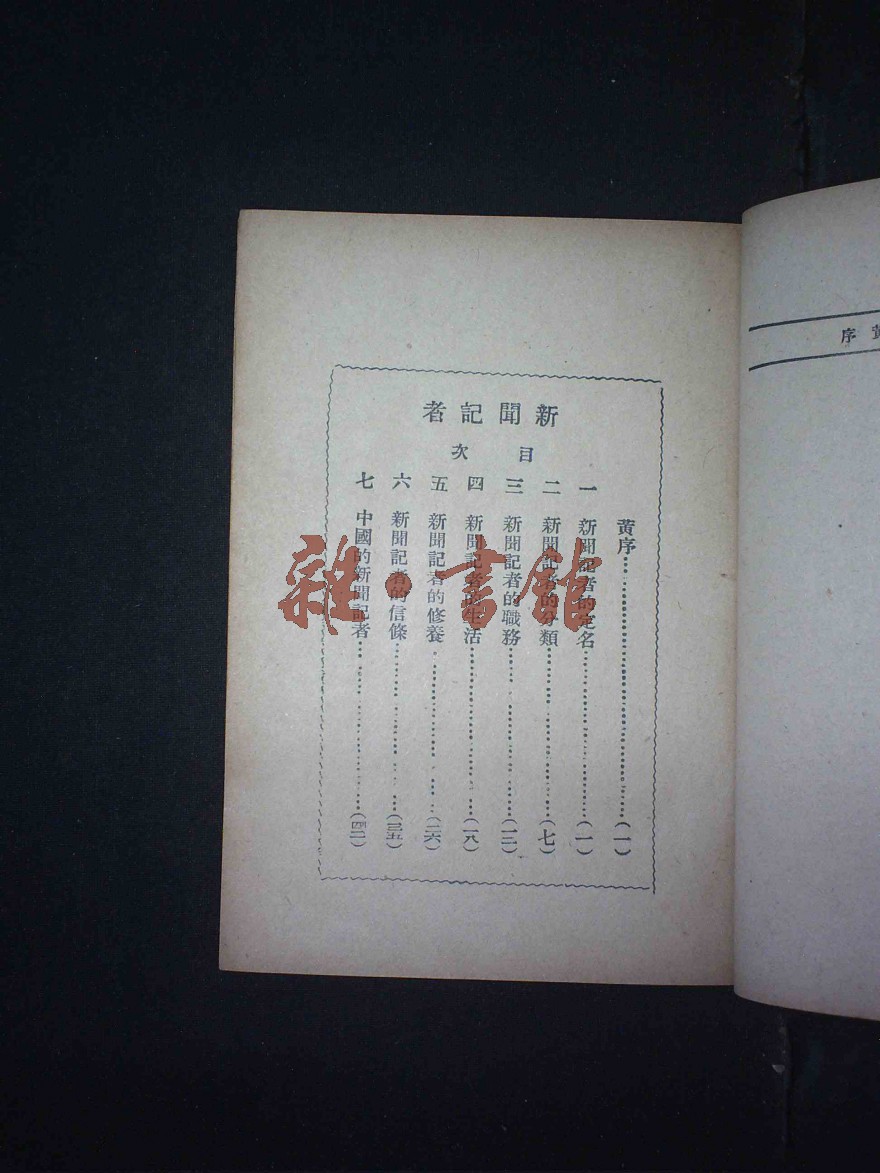 新聞記者
目次
黃序(一)
一 新聞記者的定名(一)
二 新聞記者的分類(七)
三 新聞記者的職務(一二)
四 新聞記者的生活(一八)
五 新聞記者的修養(二六)
六 新聞記者的信條(三五)
七 中國的新聞記者(四二)
黃序
雜·書館